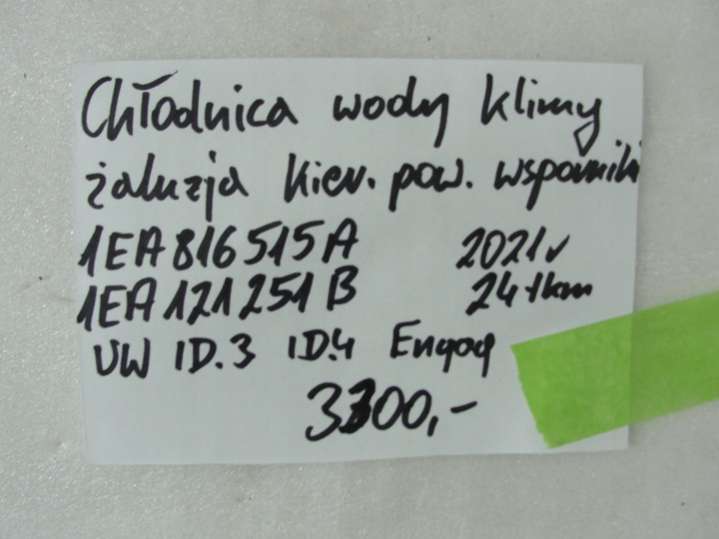 Chłodnica wody klimy
żaluzja kier. pow. wsporniki
1EA816515A 2021r
1EA121251B 24tkm
VW ID.3 ID.4 Enyaq
3300,-